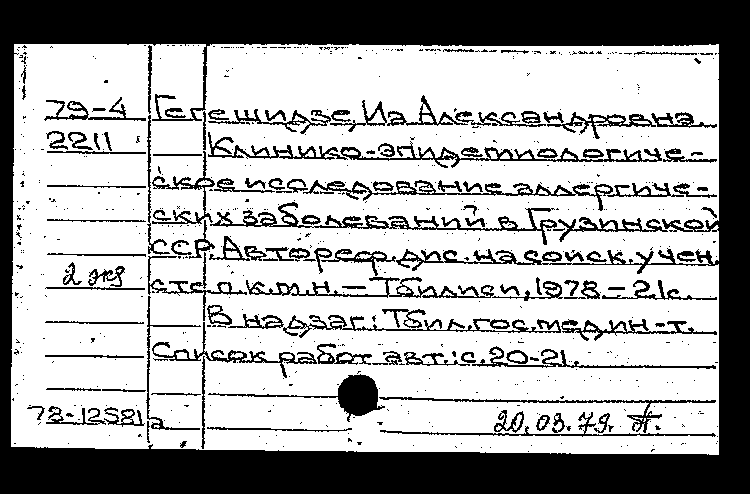 79-4 Гегешидзе, Иа Александровна.
2211 Клинико-эпидемиологиче-
ское исследование аллергиче-
ских заболеваний в Грузинской
ССР. Автореф. дис. на соиск. учен.
2 экз степ. к.м.н. — Тбилиси, 1978. — 21 с.
В надзаг.: Тбил. гос. мед. ин-т.
Список работ авт.: с. 20-21.
78-12581а 20.03.79.